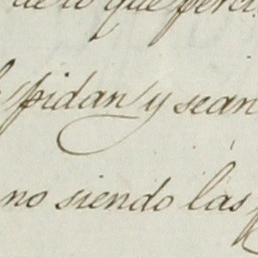 que
pidan y sean
no siendo las